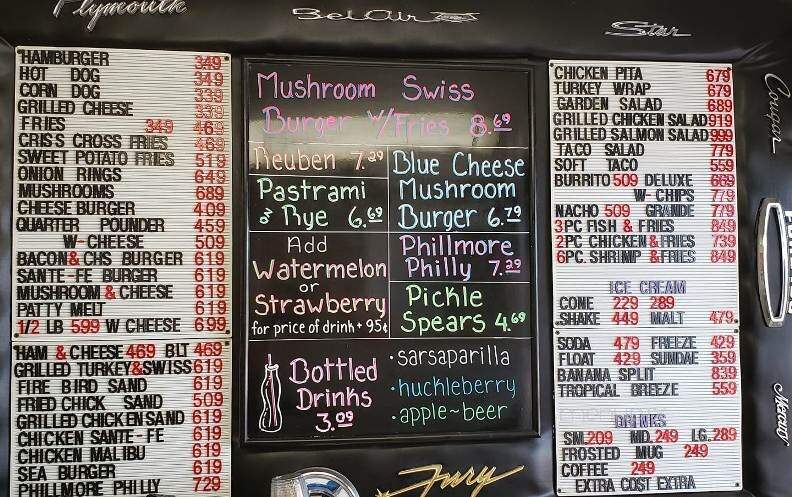 Plymouth
BelAir
Star
HAMBURGER 349
HOT DOG 349
CORN DOG 339
GRILLED CHEESE 339
FRIES 349 469
CRIS'S CROSS FRIES 469
SWEET POTATO FRIES 519
ONION RINGS 649
MUSHROOMS 689
CHEESE BURGER 409
QUARTER POUNDER 459
W-CHEESE 509
BACON & CHS BURGER 619
SANTE-FE BURGER 619
MUSHROOM & CHEESE 619
PATTY MELT 619
1/2 LB 599 W CHEESE 699
HAM & CHEESE 469 BLT 469
GRILLED TURKEY & SWISS 619
FIRE BIRD SAND 619
FRIED CHICK SAND 509
GRILLED CHICKEN SAND 619
CHICKEN SANTE-FE 619
CHICKEN MALIBU 619
SEA BURGER 619
PHILLMORE PHILLY 729
Mushroom Swiss
Burger w/Fries 8.69
Reuben 7.29
Pastrami
on Rye 6.69
Blue Cheese
Mushroom
Burger 6.79
Add
Watermelon
or
Strawberry
for price of drink + 95¢
Phillmore
Philly 7.29
Pickle
Spears 4.69
Bottled
Drinks
3.09
• sarsaparilla
• huckleberry
• apple~beer
Fury
CHICKEN PITA 679
TURKEY WRAP 679
GARDEN SALAD 689
GRILLED CHICKEN SALAD 919
GRILLED SALMON SALAD 999
TACO SALAD 779
SOFT TACO 559
BURRITO 509 DELUXE 669
W-CHIPS 779
NACHO 509 GRANDE 779
3PC FISH & FRIES 849
2PC CHICKEN & FRIES 739
6PC. SHRIMP & FRIES 849
ICE CREAM
CONE 229 289
SHAKE 449 MALT 479
SODA 479 FREEZE 429
FLOAT 429 SUNDAE 359
BANANA SPLIT 839
TROPICAL BREEZE 559
DRINKS
SM. 209 MD. 249 LG. 289
FROSTED MUG 249
COFFEE 249
EXTRA COST EXTRA
Cougar
Mercury